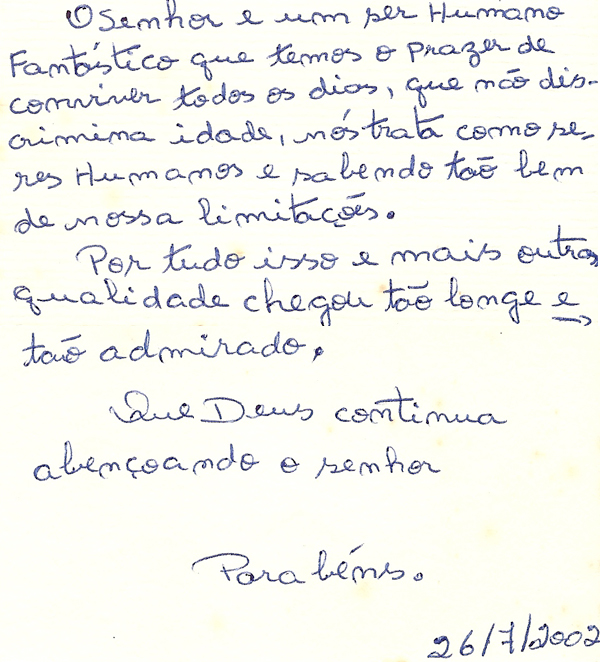 O Senhor e um ser Humano
Fantástico que temos o prazer de
conviver todos os dias, que não dis-
crimina idade, nós trata como se-
res Humanos e sabendo taõ bem
de nossa limitações.
Por tudo isso e mais outras
qualidade chegou taõ longe e
taõ admirado.
Que Deus continua
abençoando o senhor
Parabéns.
26/7/2002